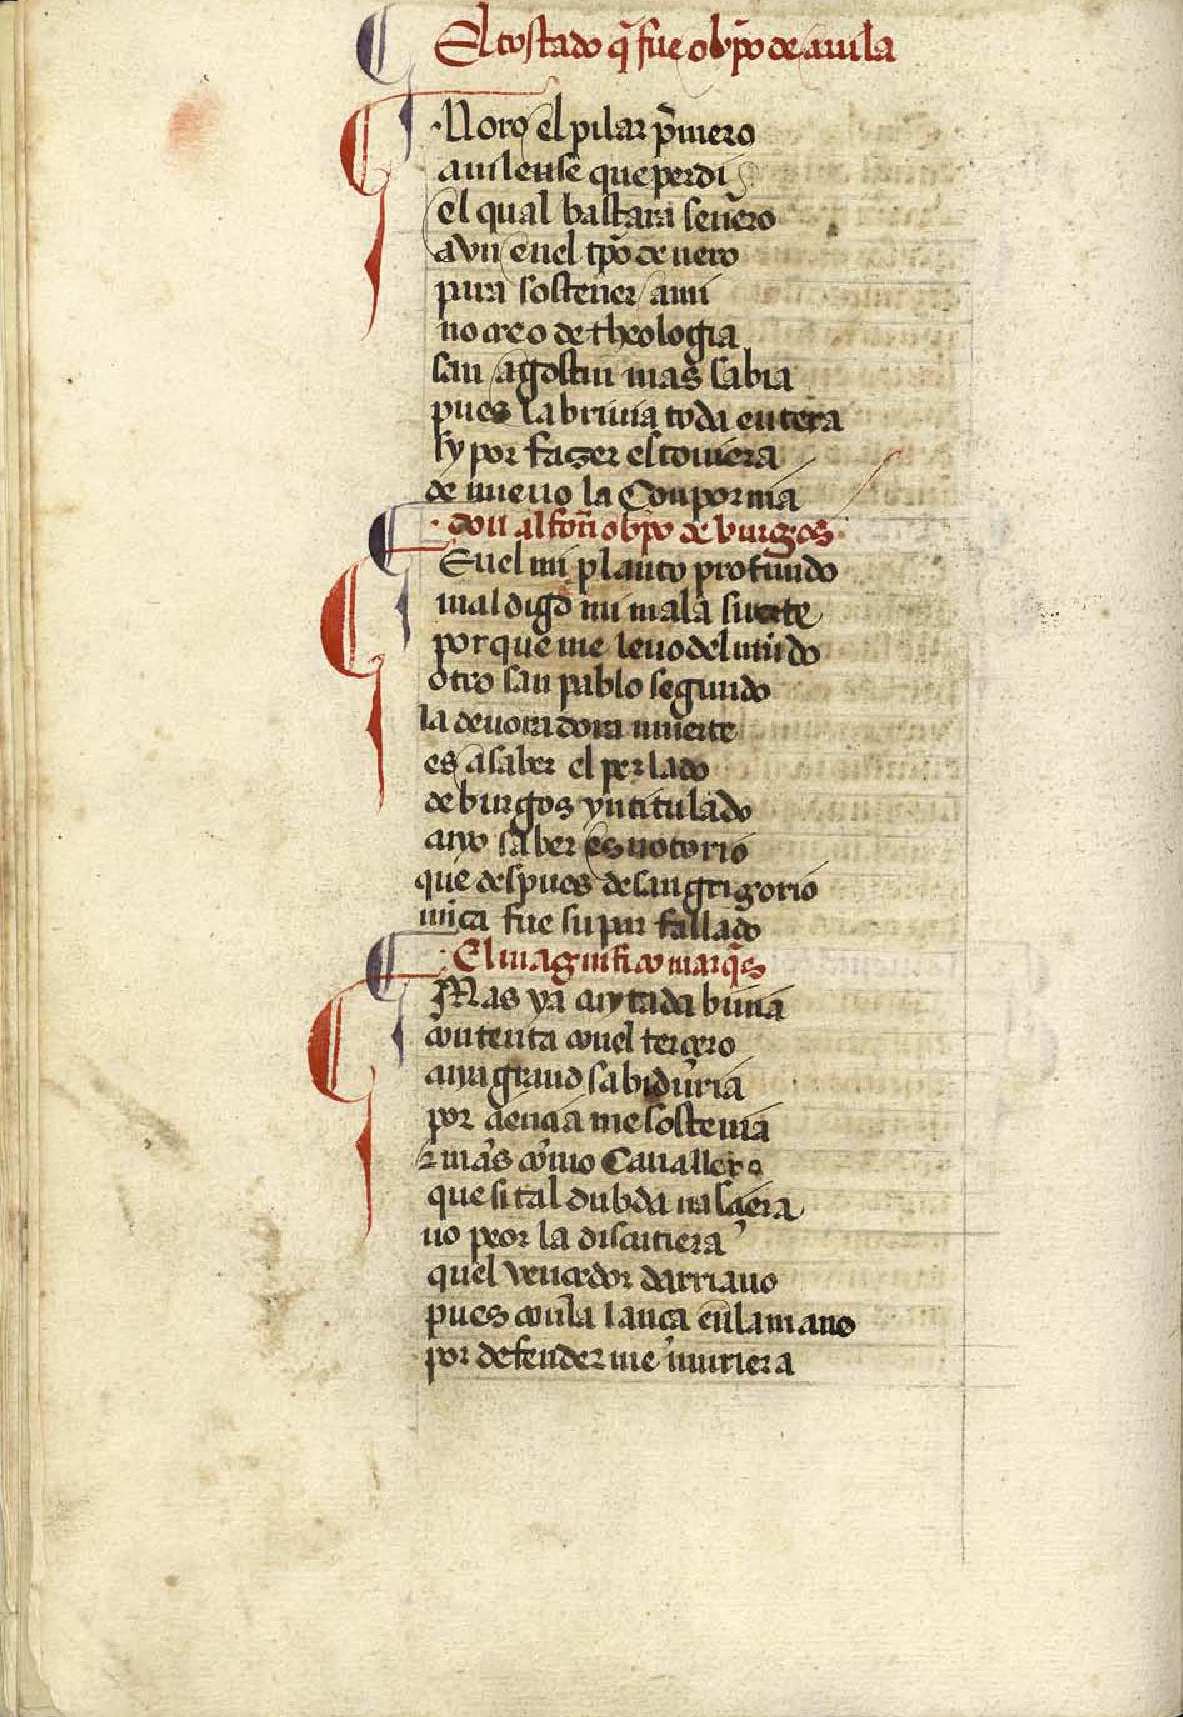 El tostado q̄ fue obp̄o de auila
lloro el pilar p̄mero
auilense que perdi
el qual bastara seuero
avn en el tp̄o de nero
para sostener a mi
no creo de theologia
san agostin mas sabia
pues la briuia toda entera
sy por fazer estouiera
de nueuo la Conpornia
don alfon̄ obp̄o de burgos
En el mi planto profundo
maldigo mi mala suerte
por que me leuo del mūdo
otro san pablo segundo
la deuoradora muerte
es a saber el perlado
de burgos yntitulado
cuyo saber es notorio
que despues de san grigorio
nūca fue su par fallado
El magnifico marq̄s
Mas ya cuytada biuia
contenta conel tercero
cuya grand sabiduria
por ciencia me sostenia
⁊ mas como Cauallero
que si tal dubda nasciera
no peor la discutiera
quel vencedor darriano
pues conla lança ēnla mano
por defender me muriera